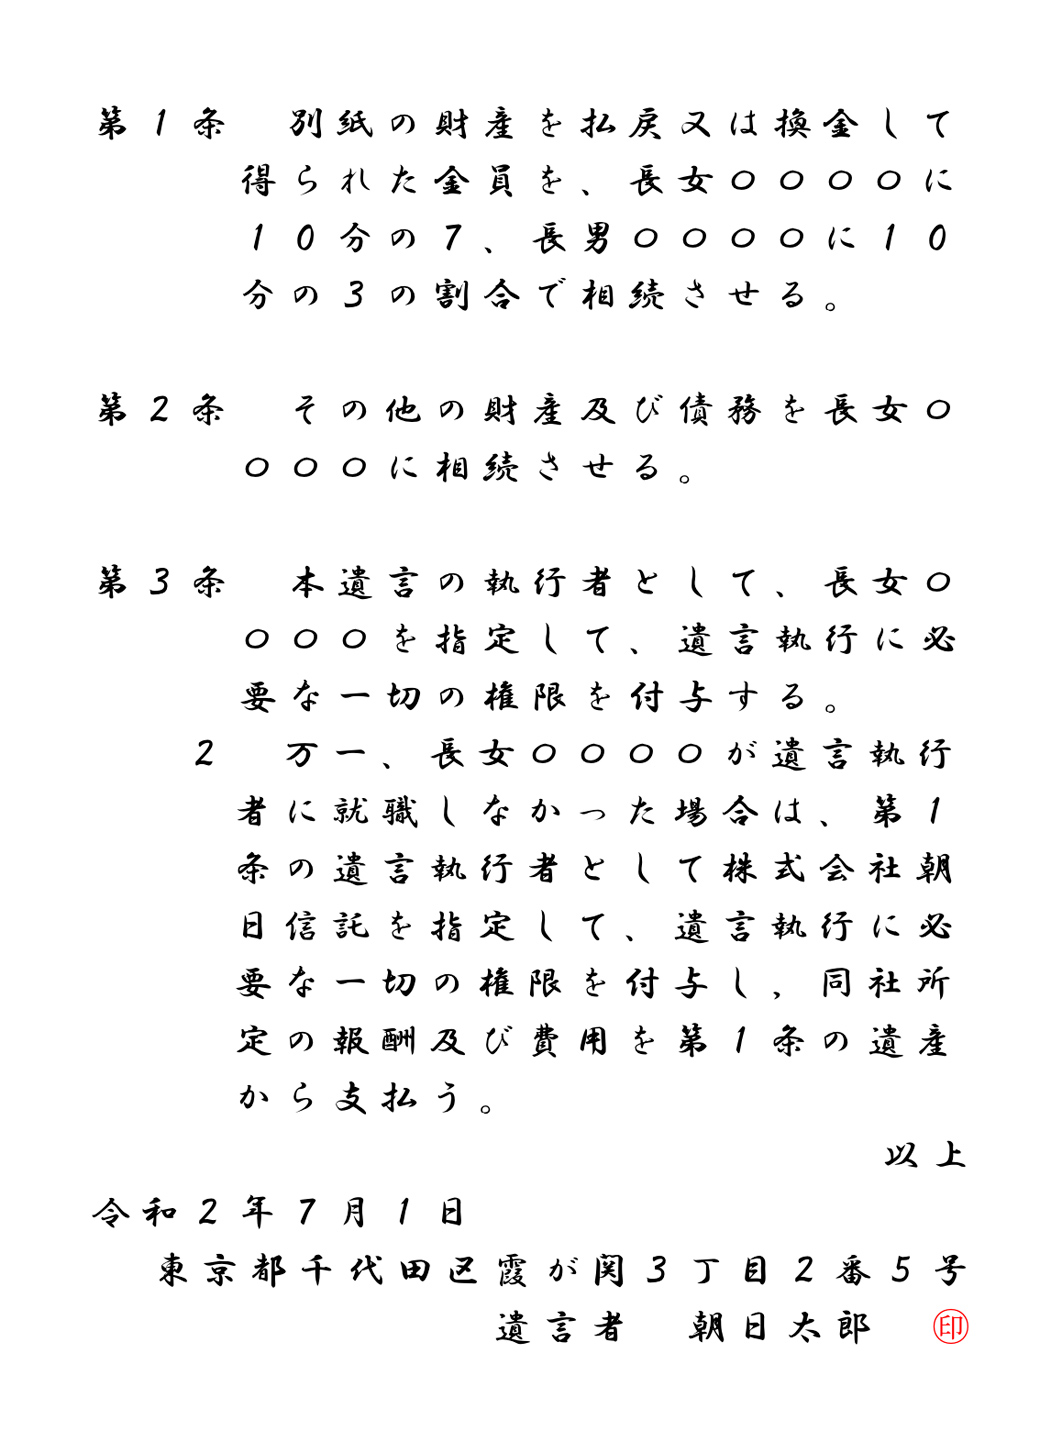 第１条　別紙の財産を払戻又は換金して
得られた金員を、長女〇〇〇〇に
１０分の７、長男〇〇〇〇に１０
分の３の割合で相続させる。
第２条　その他の財産及び債務を長女〇
〇〇〇に相続させる。
第３条　本遺言の執行者として、長女〇
〇〇〇を指定して、遺言執行に必
要な一切の権限を付与する。
２　万一、長女〇〇〇〇が遺言執行
者に就職しなかった場合は、第１
条の遺言執行者として株式会社朝
日信託を指定して、遺言執行に必
要な一切の権限を付与し，同社所
定の報酬及び費用を第１条の遺産
から支払う。
以上
令和２年７月１日
東京都千代田区霞が関３丁目２番５号
遺言者　朝日太郎　㊞